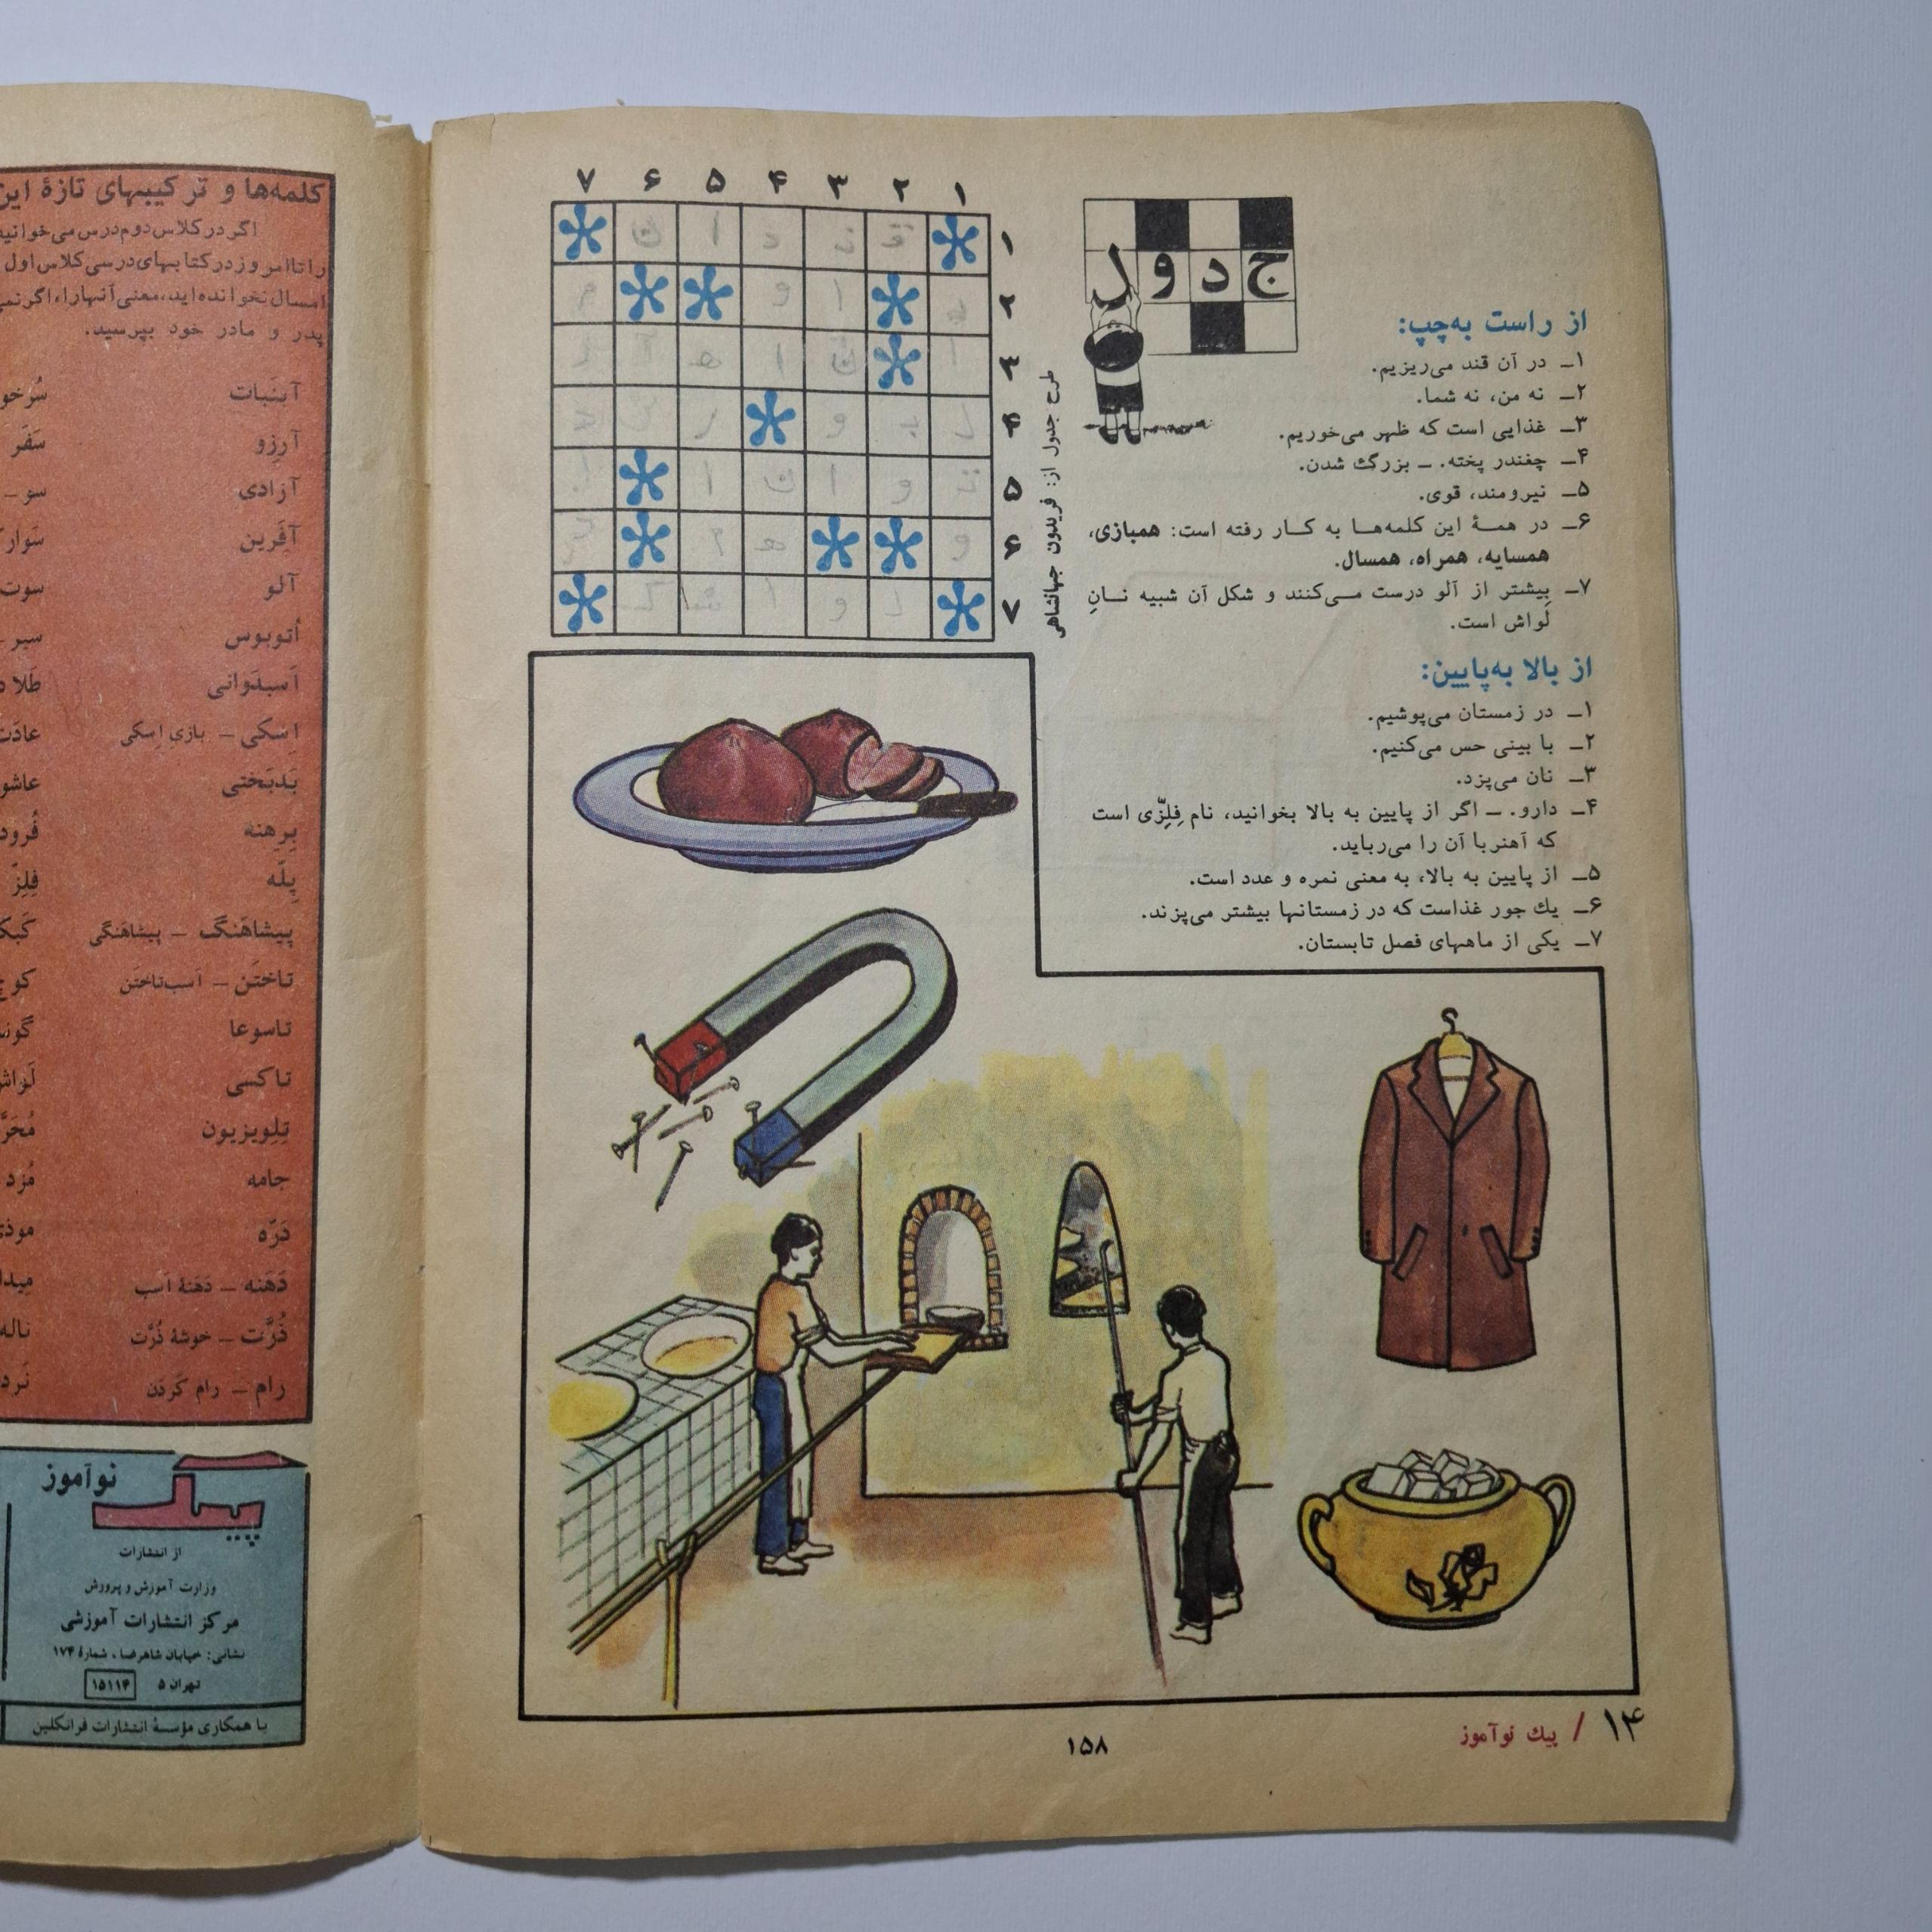 ۷ ۶ ۵ ۴ ۳ ۲ ۱
۱
۲
۳
۴
۵
۶
۷
طرح جدول از: فریدون جهانشاهی
جدول
از راست به‌چپ:
۱ــ در آن قند می‌ریزیم.
۲ــ نه من، نه شما.
۳ــ غذایی است که ظهر می‌خوریم.
۴ــ چغندر پخته. ــ بزرگ شدن.
۵ــ نیرومند، قوی.
۶ــ در همهٔ این کلمه‌ها به کار رفته است: همبازی،
همسایه، همراه، همسال.
۷ــ بیشتر از آلو درست می‌کنند و شکل آن شبیه نانِ
لَواش است.
از بالا به‌پایین:
۱ــ در زمستان می‌پوشیم.
۲ــ با بینی حس می‌کنیم.
۳ــ نان می‌پزد.
۴ــ دارو. ــ اگر از پایین به بالا بخوانید، نام فِلِزّی است
که آهنربا آن را می‌رباید.
۵ــ از پایین به بالا، به معنی نمره و عدد است.
۶ــ یك جور غذاست که در زمستانها بیشتر می‌پزند.
۷ــ یکی از ماههای فصل تابستان.
۱۴ / پیك نوآموز
۱۵۸
کلمه‌ها و ترکیبهای تازهٔ این
اگر در کلاس دوم درس می‌خوانید
را تا امروز در کتابهای درسی کلاس اول
امسال نخوانده‌اید، معنی آنها را، اگر نمی
پدر و مادر خود بپرسید.
آبنَبات
آرِزو
آزادی
آفَرین
آلو
اُتوبوس
اَسبدَوانی
اِسکی – بازی اِسکی
بَدبَختی
بِرِهنه
پِلّه
پیشاهَنگ – پیشاهَنگی
تاختَن – اَسب‌تاختَن
تاسوعا
تاکسی
تِلِویزیون
جامه
دَرّه
دَهَنه – دَهَنهٔ اَسب
ذُرَّت – خوشهٔ ذُرَّت
رام – رام کَردَن
سَفَر
سو –
سوت
طَلا
فِلِزّ
مُزد
ناله
پیك نوآموز
از انتشارات
وزارت آموزش و پرورش
مرکز انتشارات آموزشی
نشانی: خیابان شاهرضا، شمارهٔ ۱۷۴
تهران ۵ ۱۵۱۱۴
با همکاری مؤسسهٔ انتشارات فرانکلین